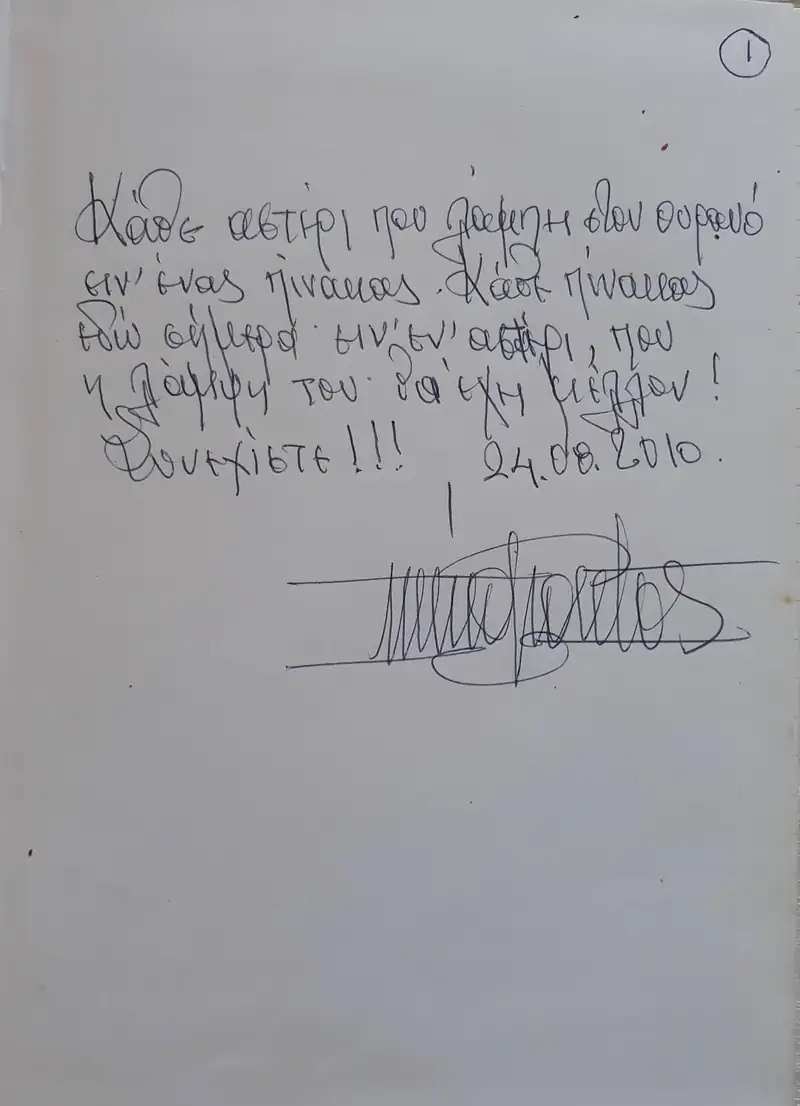 1
Κάθε αστέρι που λάμπη στον ουρανό
ειν' ένας πίνακας. Κάθε πίνακας
εδώ σήμερα ειν' εν' αστέρι, που
η λάμψη του θα έχη μέλλον!
Συνεχίστε!!! 24.08.2010.